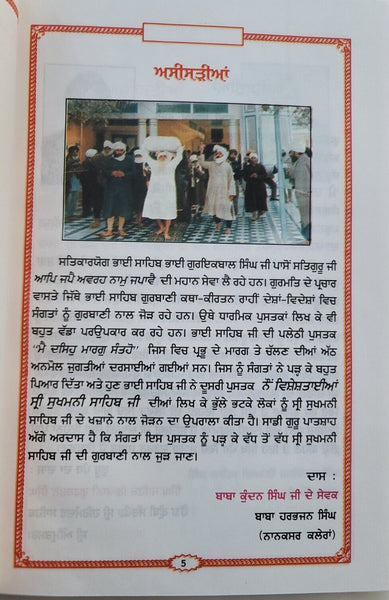 ਅਸੀਸੜੀਆਂ
ਸਤਿਕਾਰਯੋਗ ਭਾਈ ਸਾਹਿਬ ਭਾਈ ਗੁਰਇਕਬਾਲ ਸਿੰਘ ਜੀ ਪਾਸੋਂ ਸਤਿਗੁਰੂ ਜੀ
ਆਪਿ ਜਪੈ ਅਵਰਹ ਨਾਮੁ ਜਪਾਵੈ ਦੀ ਮਹਾਨ ਸੇਵਾ ਲੈ ਰਹੇ ਹਨ। ਗੁਰਮਤਿ ਦੇ ਪ੍ਰਚਾਰ
ਵਾਸਤੇ ਜਿੱਥੇ ਭਾਈ ਸਾਹਿਬ ਗੁਰਬਾਣੀ ਕਥਾ-ਕੀਰਤਨ ਰਾਹੀਂ ਦੇਸ਼ਾਂ-ਵਿਦੇਸ਼ਾਂ ਵਿਚ
ਸੰਗਤਾਂ ਨੂੰ ਗੁਰਬਾਣੀ ਨਾਲ ਜੋੜ ਰਹੇ ਹਨ। ਉਥੇ ਧਾਰਮਿਕ ਪੁਸਤਕਾਂ ਲਿਖ ਕੇ ਵੀ
ਬਹੁਤ ਵੱਡਾ ਪਰਉਪਕਾਰ ਕਰ ਰਹੇ ਹਨ। ਭਾਈ ਸਾਹਿਬ ਜੀ ਦੀ ਪਲੇਠੀ ਪੁਸਤਕ
"ਮੈ ਦਸਿਹੁ ਮਾਰਗੁ ਸੰਤਹੋ" ਜਿਸ ਵਿਚ ਪ੍ਰਭੂ ਦੇ ਮਾਰਗ ਤੇ ਚੱਲਣ ਦੀਆਂ ਅੱਠ
ਅਨਮੋਲ ਜੁਗਤੀਆਂ ਦਰਸਾਈਆਂ ਗਈਆਂ ਸਨ। ਜਿਸ ਨੂੰ ਸੰਗਤਾਂ ਨੇ ਪੜ੍ਹ ਕੇ ਬਹੁਤ
ਪਿਆਰ ਦਿੱਤਾ ਅਤੇ ਹੁਣ ਭਾਈ ਸਾਹਿਬ ਜੀ ਨੇ ਦੂਸਰੀ ਪੁਸਤਕ ਨੌਂ ਵਿਸ਼ੇਸ਼ਤਾਈਆਂ
ਸ੍ਰੀ ਸੁਖਮਨੀ ਸਾਹਿਬ ਜੀ ਦੀਆਂ ਲਿਖ ਕੇ ਭੁੱਲੇ ਭਟਕੇ ਲੋਕਾਂ ਨੂੰ ਸ੍ਰੀ ਸੁਖਮਨੀ
ਸਾਹਿਬ ਜੀ ਦੇ ਖਜ਼ਾਨੇ ਨਾਲ ਜੋੜਨ ਦਾ ਉਪਰਾਲਾ ਕੀਤਾ ਹੈ। ਸਾਡੀ ਗੁਰੂ ਪਾਤਸ਼ਾਹ
ਅੱਗੇ ਅਰਦਾਸ ਹੈ ਕਿ ਸੰਗਤਾਂ ਇਸ ਪੁਸਤਕ ਨੂੰ ਪੜ੍ਹ ਕੇ ਵੱਧ ਤੋਂ ਵੱਧ ਸ੍ਰੀ ਸੁਖਮਨੀ
ਸਾਹਿਬ ਜੀ ਦੀ ਗੁਰਬਾਣੀ ਨਾਲ ਜੁੜ ਜਾਣ।
ਦਾਸ :
ਬਾਬਾ ਕੁੰਦਨ ਸਿੰਘ ਜੀ ਦੇ ਸੇਵਕ
ਬਾਬਾ ਹਰਭਜਨ ਸਿੰਘ
(ਨਾਨਕਸਰ ਕਲੇਰਾਂ)
5